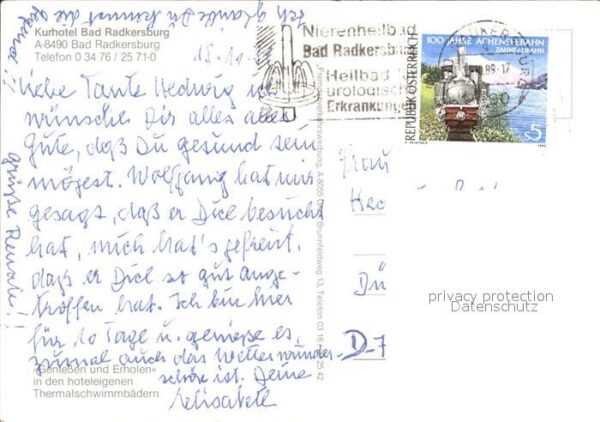 Ich glaube Du kennst die
Gegend!!
Kurhotel Bad Radkersburg
A-8490 Bad Radkersburg
Telefon 0 34 76 / 25 71-0
18.10.
Liebe Tante Hedwig
wünsche Dir alles alles
Gute, daß Du gesund sein
mögest. Wolfgang hat mir
gesagt, daß er Dich besucht
hat, mich hat's gefreut,
daß er Dich so gut ange-
troffen hat. Ich bin hier
für 10 Tage u. genieße es,
zumal auch das Wetter wunder-
schön ist. Deine
Elisabeth
Grüße Renate!!
»Genießen und Erholen«
in den hoteleigenen
Thermalschwimmbädern
Nierenheilbad
Bad Radkersburg
Heilbad
urologische
Erkrankungen
100 JAHRE ACHENSEEBAHN
ZAHNRADBAHN
REPUBLIK ÖSTERREICH
S 5
89-17
Frau
Hed
Dü
D-7
privacy protection
Datenschutz